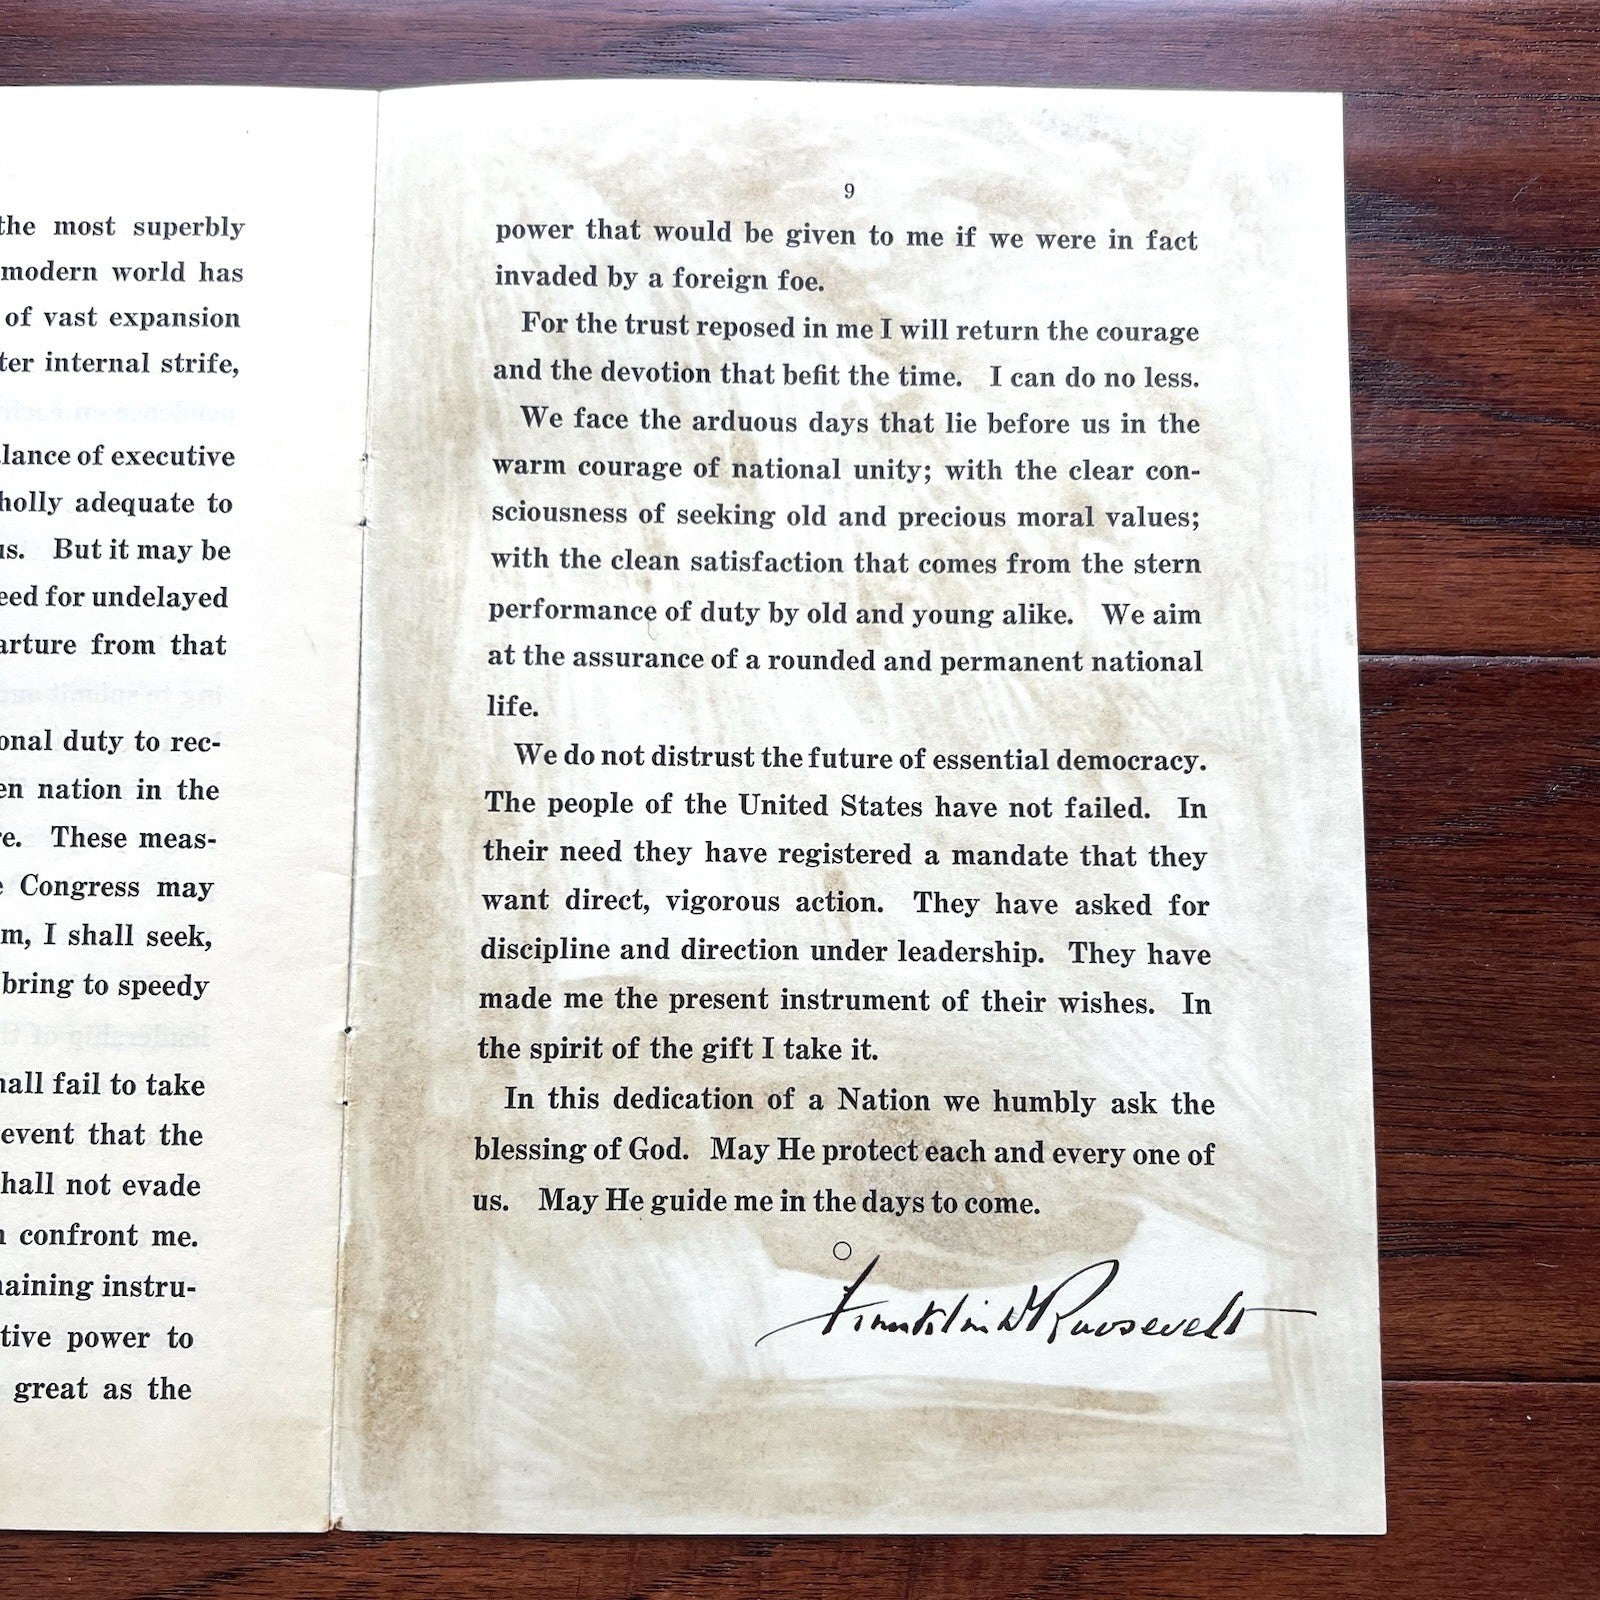 the most superbly
modern world has
of vast expansion
ter internal strife,
lance of executive
holly adequate to
us. But it may be
eed for undelayed
arture from that
onal duty to rec-
en nation in the
re. These meas-
e Congress may
m, I shall seek,
bring to speedy
hall fail to take
event that the
hall not evade
n confront me.
naining instru-
tive power to
great as the
9
power that would be given to me if we were in fact
invaded by a foreign foe.
For the trust reposed in me I will return the courage
and the devotion that befit the time. I can do no less.
We face the arduous days that lie before us in the
warm courage of national unity; with the clear con-
sciousness of seeking old and precious moral values;
with the clean satisfaction that comes from the stern
performance of duty by old and young alike. We aim
at the assurance of a rounded and permanent national
life.
We do not distrust the future of essential democracy.
The people of the United States have not failed. In
their need they have registered a mandate that they
want direct, vigorous action. They have asked for
discipline and direction under leadership. They have
made me the present instrument of their wishes. In
the spirit of the gift I take it.
In this dedication of a Nation we humbly ask the
blessing of God. May He protect each and every one of
us. May He guide me in the days to come.
Franklin D Roosevelt